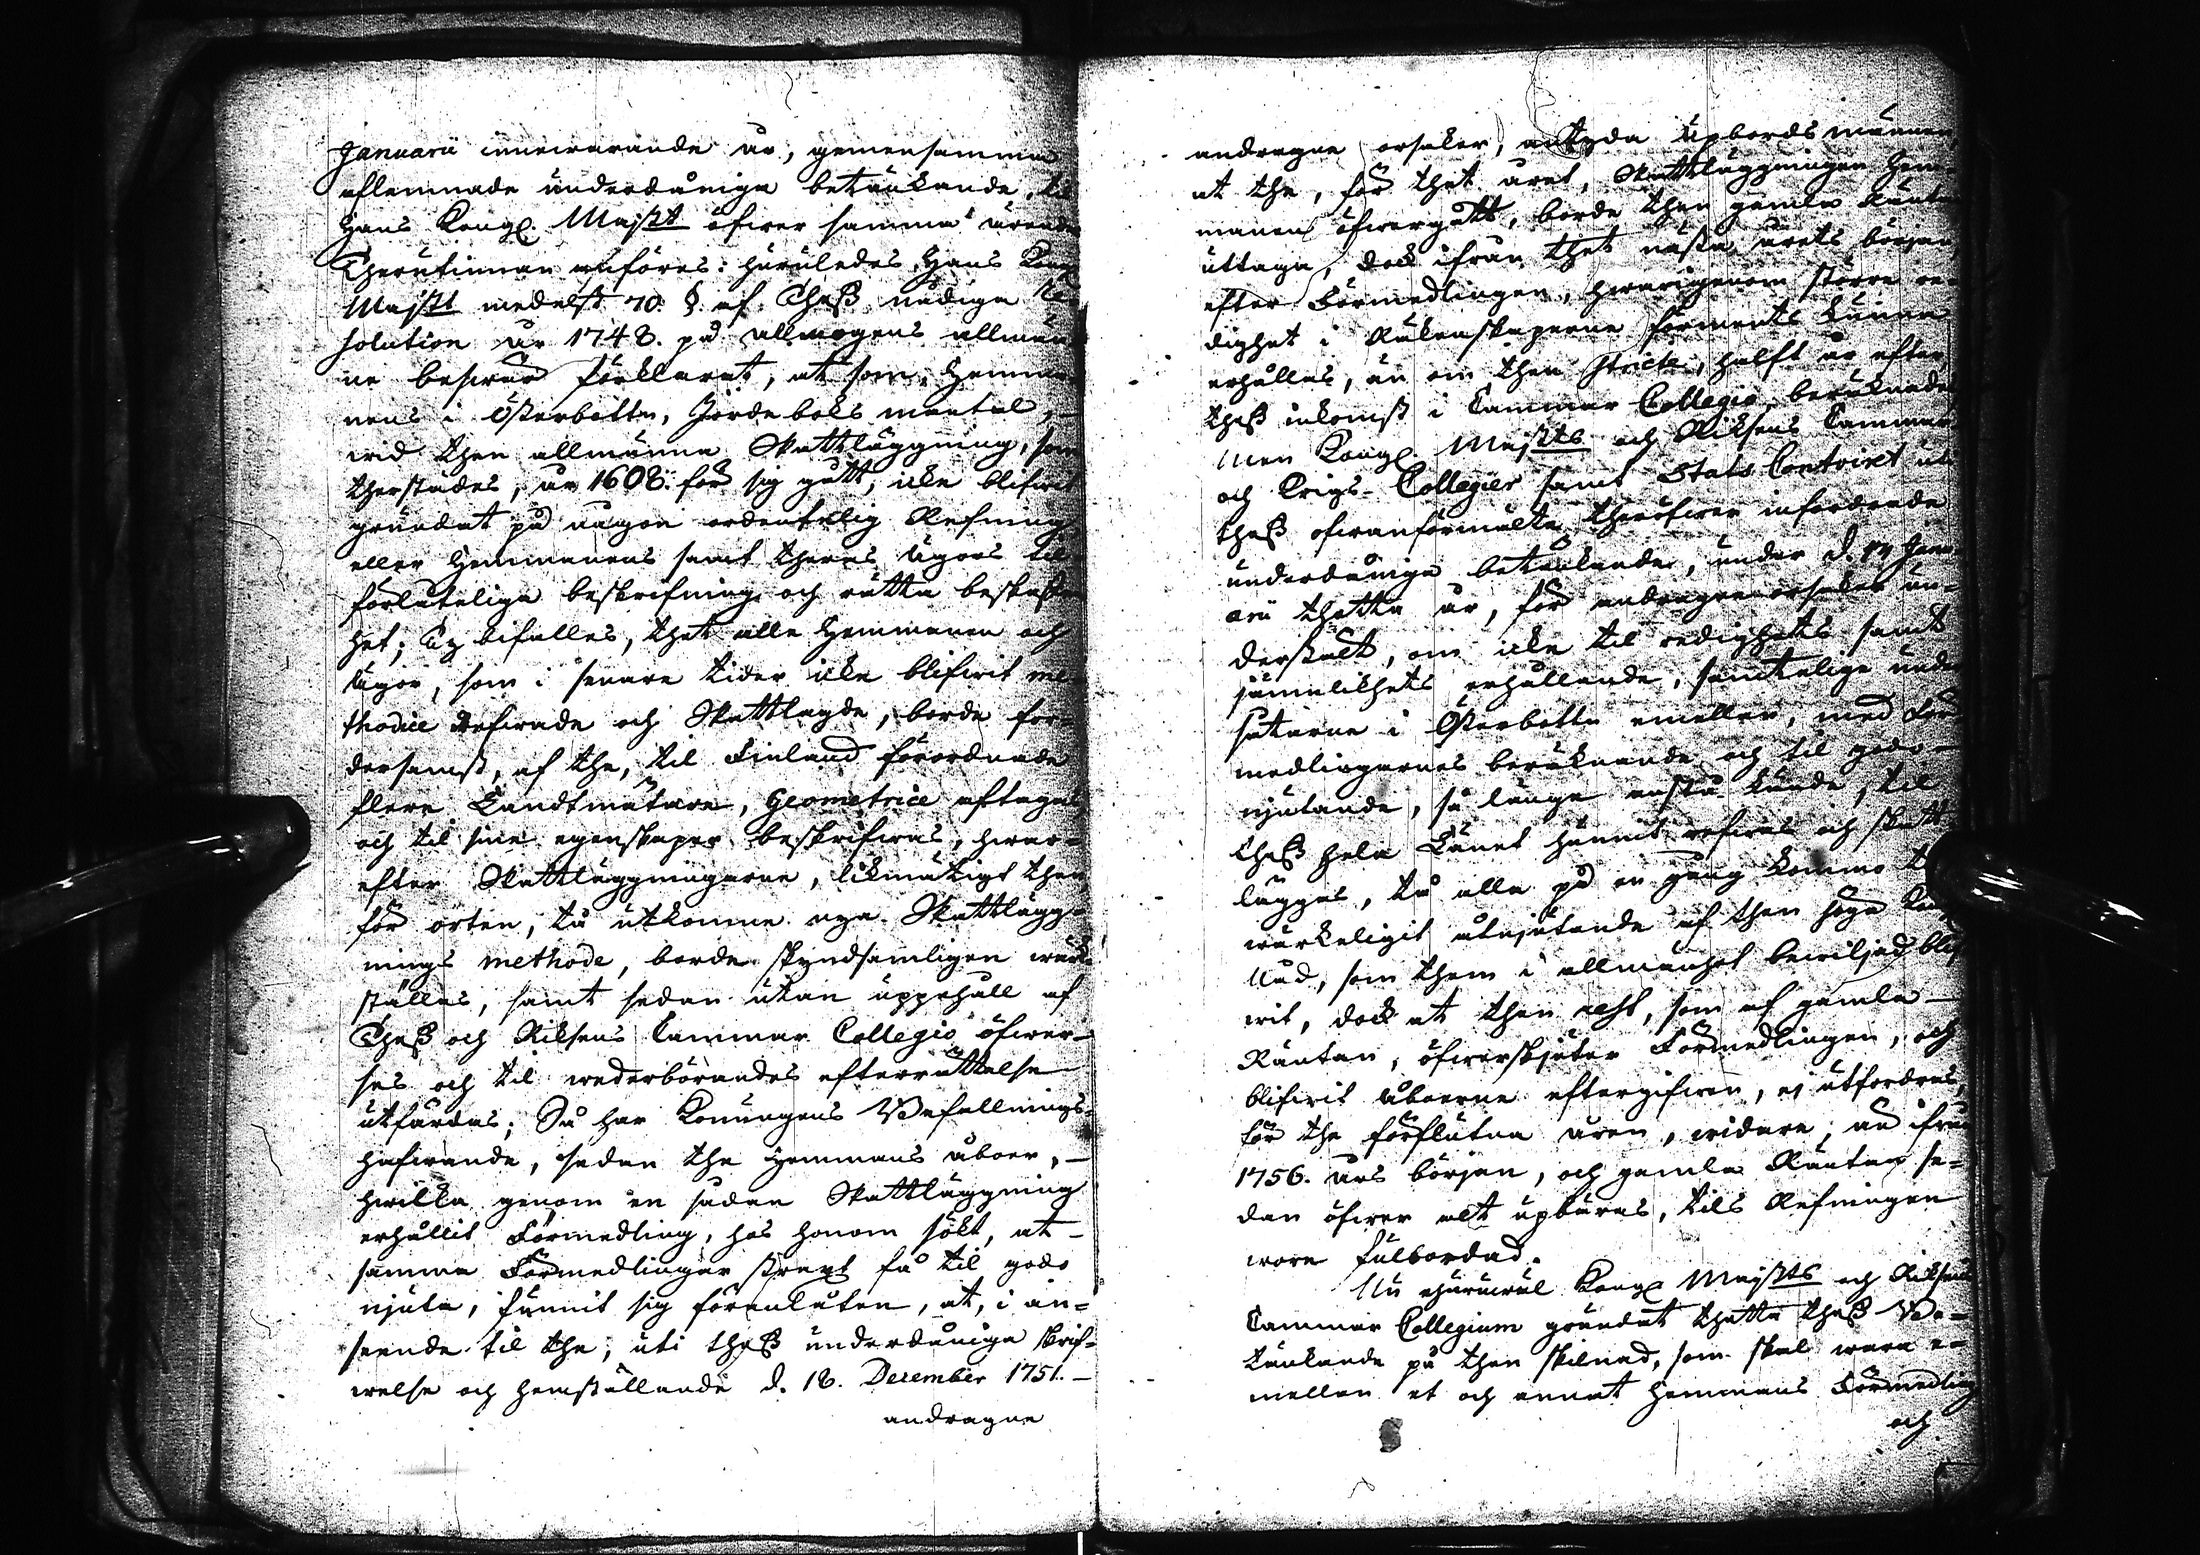 Januarii innewarande år, gemensamma
aflemnade underdåniga betänkande, til
Hans Kongl. Majst öfwer samma ärende
Therutinnan anföres: huruledes Hans Kongl.
Majst medelst 70. §. af Theß nådiga Re-
solution år 1748. på allmogens allmän-
na beswär förklarat, at som, Hemma-
nens i Österbotten, Jordeboks mantal,
wid then allmänna Skattläggning, som
therstädes, år 1608. för sig gått, icke blifwit
grundat på någon ordentelig Refning
eller Hemmanens samt theras ägors til-
förlåteliga beskrifning och rätta beskaffen-
het; Ty bifalles, thet alla Hemmanen och
ägor, som i senare tider icke blifwit me-
thodice Refwade och Skattlagde, borde for-
dersamst, af the, til Finland förordnade
flere Landtmätare, Geometrice aftagas
och til sine egenskaper beskrifwas, hwar-
efter Skattläggningarne, likmätigt then
för orten, tå utkomne nya Skattlägg-
nings methode, borde skyndsamligen werk-
ställas, samt sedan utan uppehåll af
Theß och Riksens Cammar Collegio öfwer-
ses och til wederbörandes efterrättelse
utfärdas; Så har Konungens Befallnings-
hafwande, sedan the Hemmans åboer,
hwilka genom en sådan Skattläggning
erhållit Förmedling, hos honom sökt, at
samma Förmedlingar strext få til godo
njuta, funnit sig föranlåten, at, i an-
seende til the, uti theß underdåniga skrif-
welse och hemställande d. 18. December 1751.
andragne
andragne orsaker, antyda Upbördsmännen
at the, för thet året, Skattläggningen Hem-
manen öfwergått, borde then gamla Räntan
uttaga, dock ifrån thet nästa årets början
efter Förmedlingen, hwarigenom större re-
dighet i Räkenskaperne förments kunna
erhållas, än om then stricte, halft år efter
theß inkomst i Cammar Collegio, beräknades
Men Kongl. Majsts och Riksens Cammar
och Krigs-Collegier samt Stats Contoiret uti
theß ofwanförmälta, theröfwer infordrade
underdåniga betänkande, under d. 14 Janu-
arii thetta år, för andragne orsaker un-
derstält, om icke til redighets samt
jämnlikhets erhållande, samtelige under-
såtarne i Österbotten emellan, med För-
medlingarnes beräknande och til godo-
njutande, så länge anstå kunde, til
theß hela Länet hunnit refwas och skatt-
läggas, tå alla på en gång kommo
wärkeligit åtnjutande af then höga Kongl.
Nåd, som them i allmänhet bewiljad blif-
wit, dock at then rest, som af gamla
Räntan, öfwerskjuter Förmedlingen, och
blifwit åboerne eftergifwen, ej utfordras
för the förflutna åren, widare, än ifrån
1756. års början, och gamla Räntan se-
dan öfwer alt upbäras, tils Refningen
wore fulbordad.
Nu ehuruwäl Kongl. Majsts och Riksens
Cammar Collegium grundat thetta theß Be-
tänkande på then skilnad, som skal wara e-
mellan et och annat Hemmans Förmedling
och